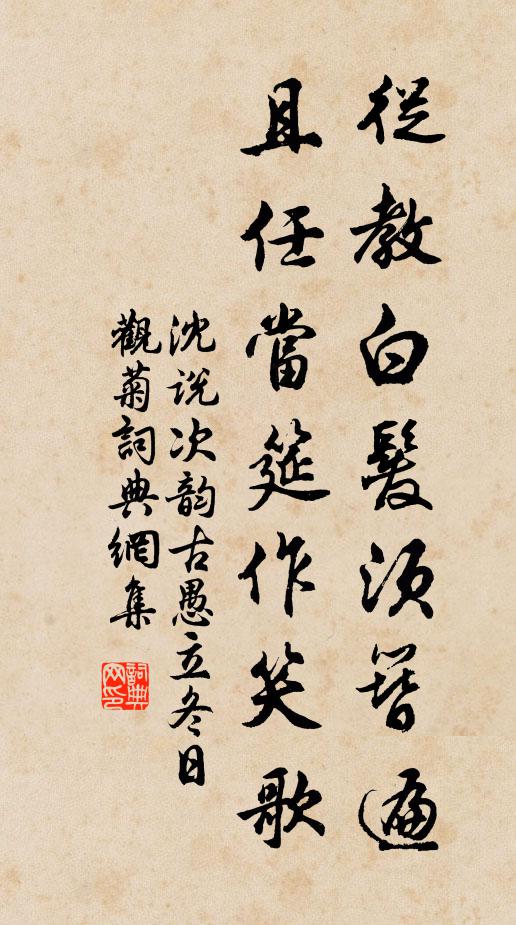 從教白髮須簪遍
且任當筵作笑歌
沈說次韵古愚立冬日
觀菊詞典網集
詞典
网印